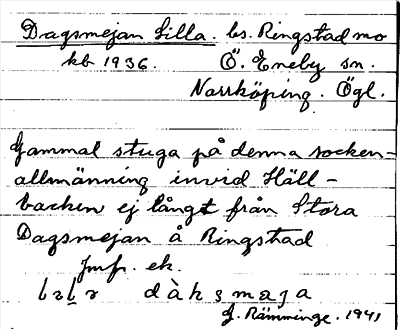 Dagsmejan Lilla. bs. Ringstad mo
kb 1936. Ö. Eneby sn.
Norrköping. Ögl.
Gammal stuga på denna socken-
allmänning invid Häll-
backen ej långt från Stora
Dagsmejan å Ringstad
Jmfr. ek.
dàksmaja
G. Rämminge. 1941